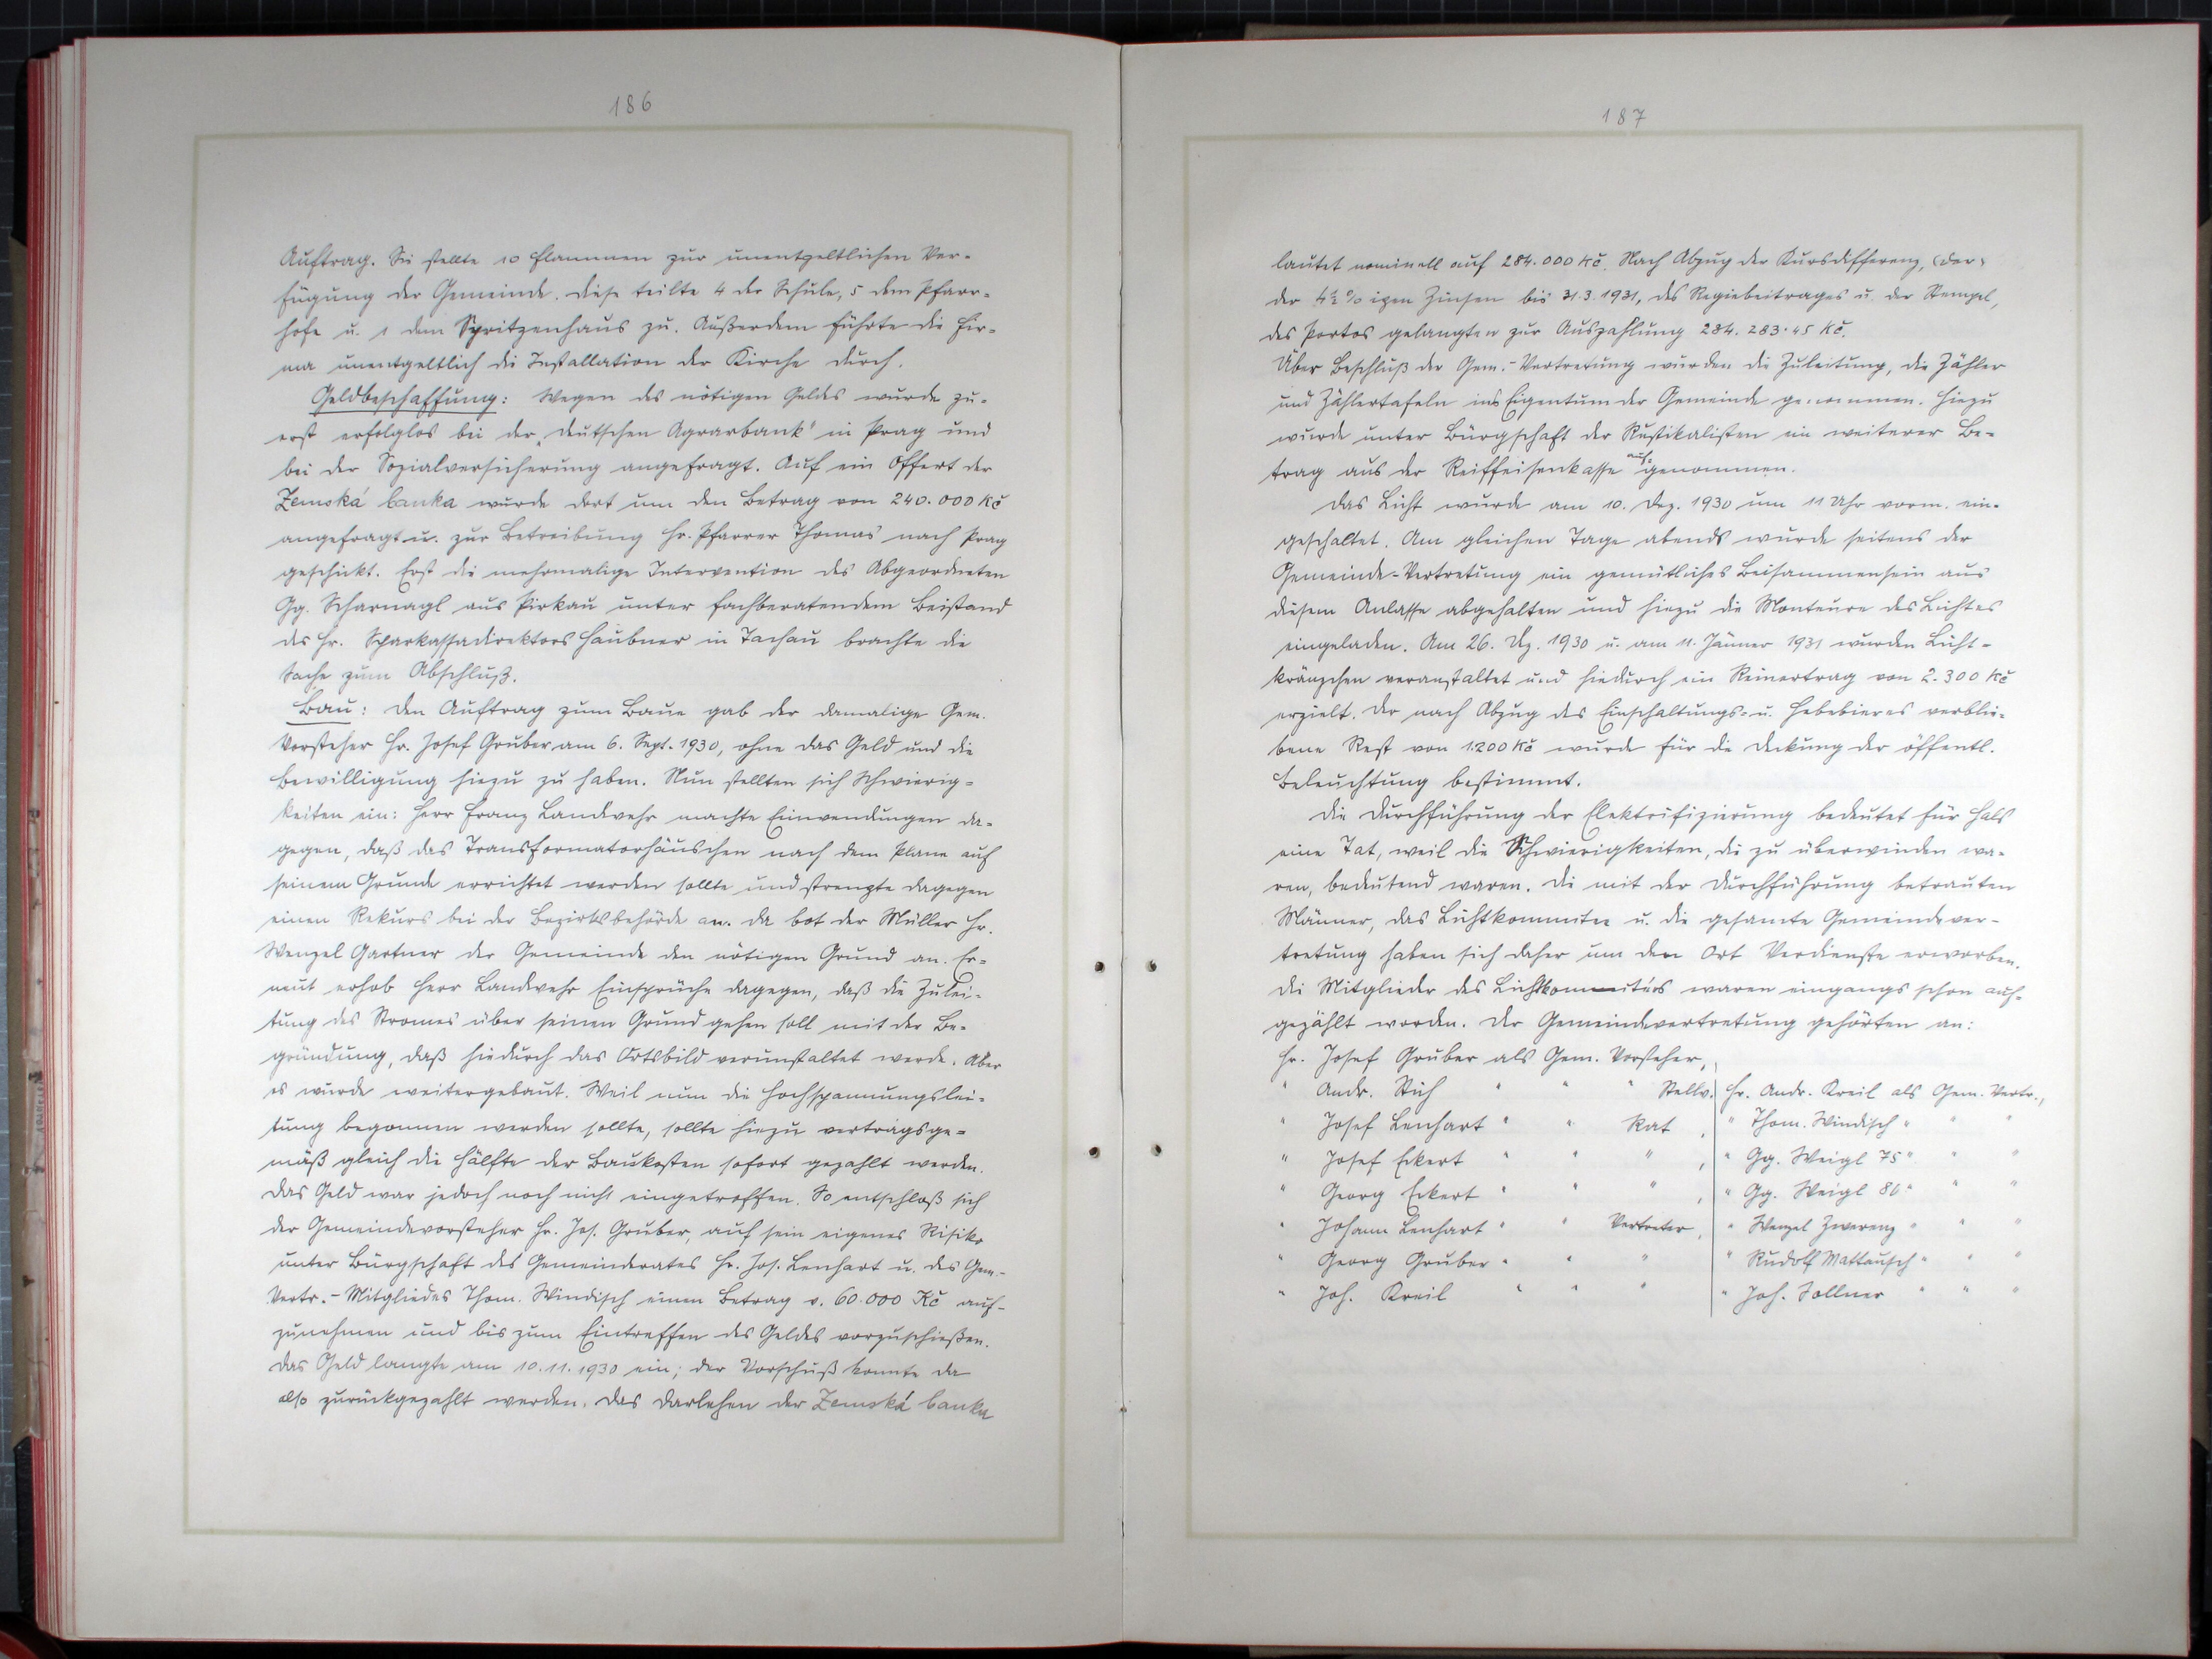 186
Auftrag. Sie stellte 10 Flammen zur unentgeltlichen Ver-
fügung der Gemeinde. Diese teilte 4 der Schule, 5 dem Pfarr-
hofe u. 1 dem Spritzenhaus zu. Außerdem führte die Fir-
ma unentgeltlich die Installation der Kirche durch.
Geldbeschaffung: Wegen des nötigen Geldes wurde zu-
erst erfolglos bei der „Deutschen Agrarbank" in Prag und
bei der Sozialversicherung angefragt. Auf ein Offert der
Zemská banka wurde dort um den Betrag von 240.000 Kč
angefragt u. zur Betreibung Hr. Pfarrer Thomas nach Prag
geschickt. Erst die mehrmalige Intervention des Abgeordneten
Gg. Scharnagl aus Pirkau unter fachberatendem Beistand
des Hr. Sparkassadirektors Haubner in Tachau brachte die
Sache zum Abschluß.
Bau: Den Auftrag zum Baue gab der damalige Gem.
Vorsteher Hr. Josef Gruber am 6. Sept. 1930, ohne das Geld und die
Bewilligung hiezu zu haben. Nun stellten sich Schwierig-
keiten ein: Herr Franz Landwehr machte Einwendungen da-
gegen, daß das Transformatorhäuschen nach dem Plane auf
seinem Grunde errichtet werden sollte und strengte dagegen
einen Rekurs bei der Bezirksbehörde an. Da bot der Müller Hr.
Wenzel Gartner der Gemeinde den nötigen Grund an. Er-
neut erhob Herr Landwehr Einsprüche dagegen, daß die Zulei-
tung des Stromes über seinen Grund gehen soll mit der Be-
gründung, daß hiedurch das Ortsbild verunstaltet werde. Aber
es wurde weitergebaut. Weil nun die Hochspannungslei-
tung begonnen werden sollte, sollte hiezu vertragsge-
mäß gleich die Hälfte der Baukosten sofort gezahlt werden.
Das Geld war jedoch noch nicht eingetroffen. So entschloß sich
der Gemeindevorsteher Hr. Jos. Gruber, auf sein eigenes Risiko
unter Bürgschaft des Gemeinderates Hr. Jos. Lenhart u. des Gem.-
Vertr.-Mitgliedes Thom. Windisch einen Betrag v. 60.000 Kč auf-
zunehmen und bis zum Eintreffen des Geldes vorzuschießen.
Das Geld langte am 10.11.1930 ein; der Vorschuß konnte da
also zurückgezahlt werden. Das Darlehen der Zemská banka
187
lautet nominell auf 284.000 Kč. Nach Abzug der Kursdifferenz, (der)
der 4½%igen Zinsen bis 31.3.1931, des Regiebeitrages u. der Stempel,
des Portos gelangten zur Auszahlung 234.283.45 Kč.
Über Beschluß der Gem.-Vertretung wurden die Zuleitung, die Zähler
und Zählertafeln ins Eigentum der Gemeinde genommen. Hiezu
wurde unter Bürgschaft der Rustikalisten ein weiterer Be-
trag aus der Reiffeisenkasse aufgenommen.
Das Licht wurde am 10. Dez. 1930 um 11 Uhr vorm. ein-
geschaltet. Am gleichen Tage abends wurde seitens der
Gemeinde-Vertretung ein gemütliches Beisammensein aus
diesem Anlasse abgehalten und hiezu die Monteure des Lichtes
eingeladen. Am 26. Dez. 1930 u. am 11. Jänner 1931 wurden Licht-
kränzchen veranstaltet und hiedurch ein Reinertrag von 2.300 Kč
erzielt. Der nach Abzug des Einschaltungs- u. Hebebieres verblie-
bene Rest von 1.200 Kč wurde für die Deckung der öffentl.
Beleuchtung bestimmt.
Die Durchführung der Elektrifizierung bedeutet für Hals
eine Tat, weil die Schwierigkeiten, die zu überwinden wa-
ren, bedeutend waren. Die mit der Durchführung betrauten
Männer, das Lichtkommitee u. die gesamte Gemeindever-
tretung haben sich daher um den Ort Verdienste erworben.
Die Mitglieder des Lichtkommités waren eingangs schon auf-
gezählt worden. Der Gemeindevertretung gehörten an:
Hr. Josef Gruber als Gem. Vorsteher,
" Andr. Stich " " " Stellv. Hr. Andr. Kreil als Gem. Vertr.,
" Josef Lenhart " " Rat, " Thom. Windisch " " "
" Josef Eckert " " ", " Gg. Weigl 75 " " "
" Georg Eckert " " ", " Gg. Weigl 86 " " "
" Johann Lenhart " " Vertreter, " Wenzel Zwerenz " " "
" Georg Gruber " " " " Rudolf Mattausch " " "
" Joh. Kreil " " " " Joh. Sollner " " "